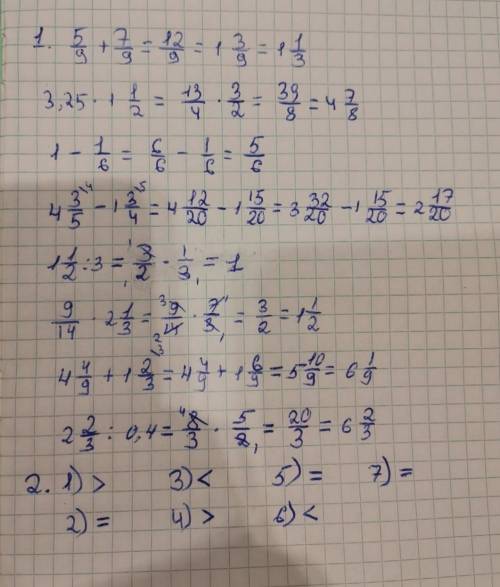 1. 5/9 + 7/9 = 12/9 = 1 3/9 = 1 1/3
3,25 · 1 1/2 = 13/4 · 3/2 = 39/8 = 4 7/8
1 - 1/6 = 6/6 - 1/6 = 5/6
4 3/5 - 1 3/4 = 4 12/20 - 1 15/20 = 3 32/20 - 1 15/20 = 2 17/20
1 1/2 : 3 = 3/2 · 1/3 = 1
9/14 · 2 1/3 = 9/14 · 7/3 = 3/2 = 1 1/2
4 4/9 + 1 2/3 = 4 4/9 + 1 6/9 = 5 10/9 = 6 1/9
2 2/3 : 0,4 = 8/3 · 5/2 = 20/3 = 6 2/3
2. 1) > 3) < 5) = 7) =
2) = 4) > 6) <